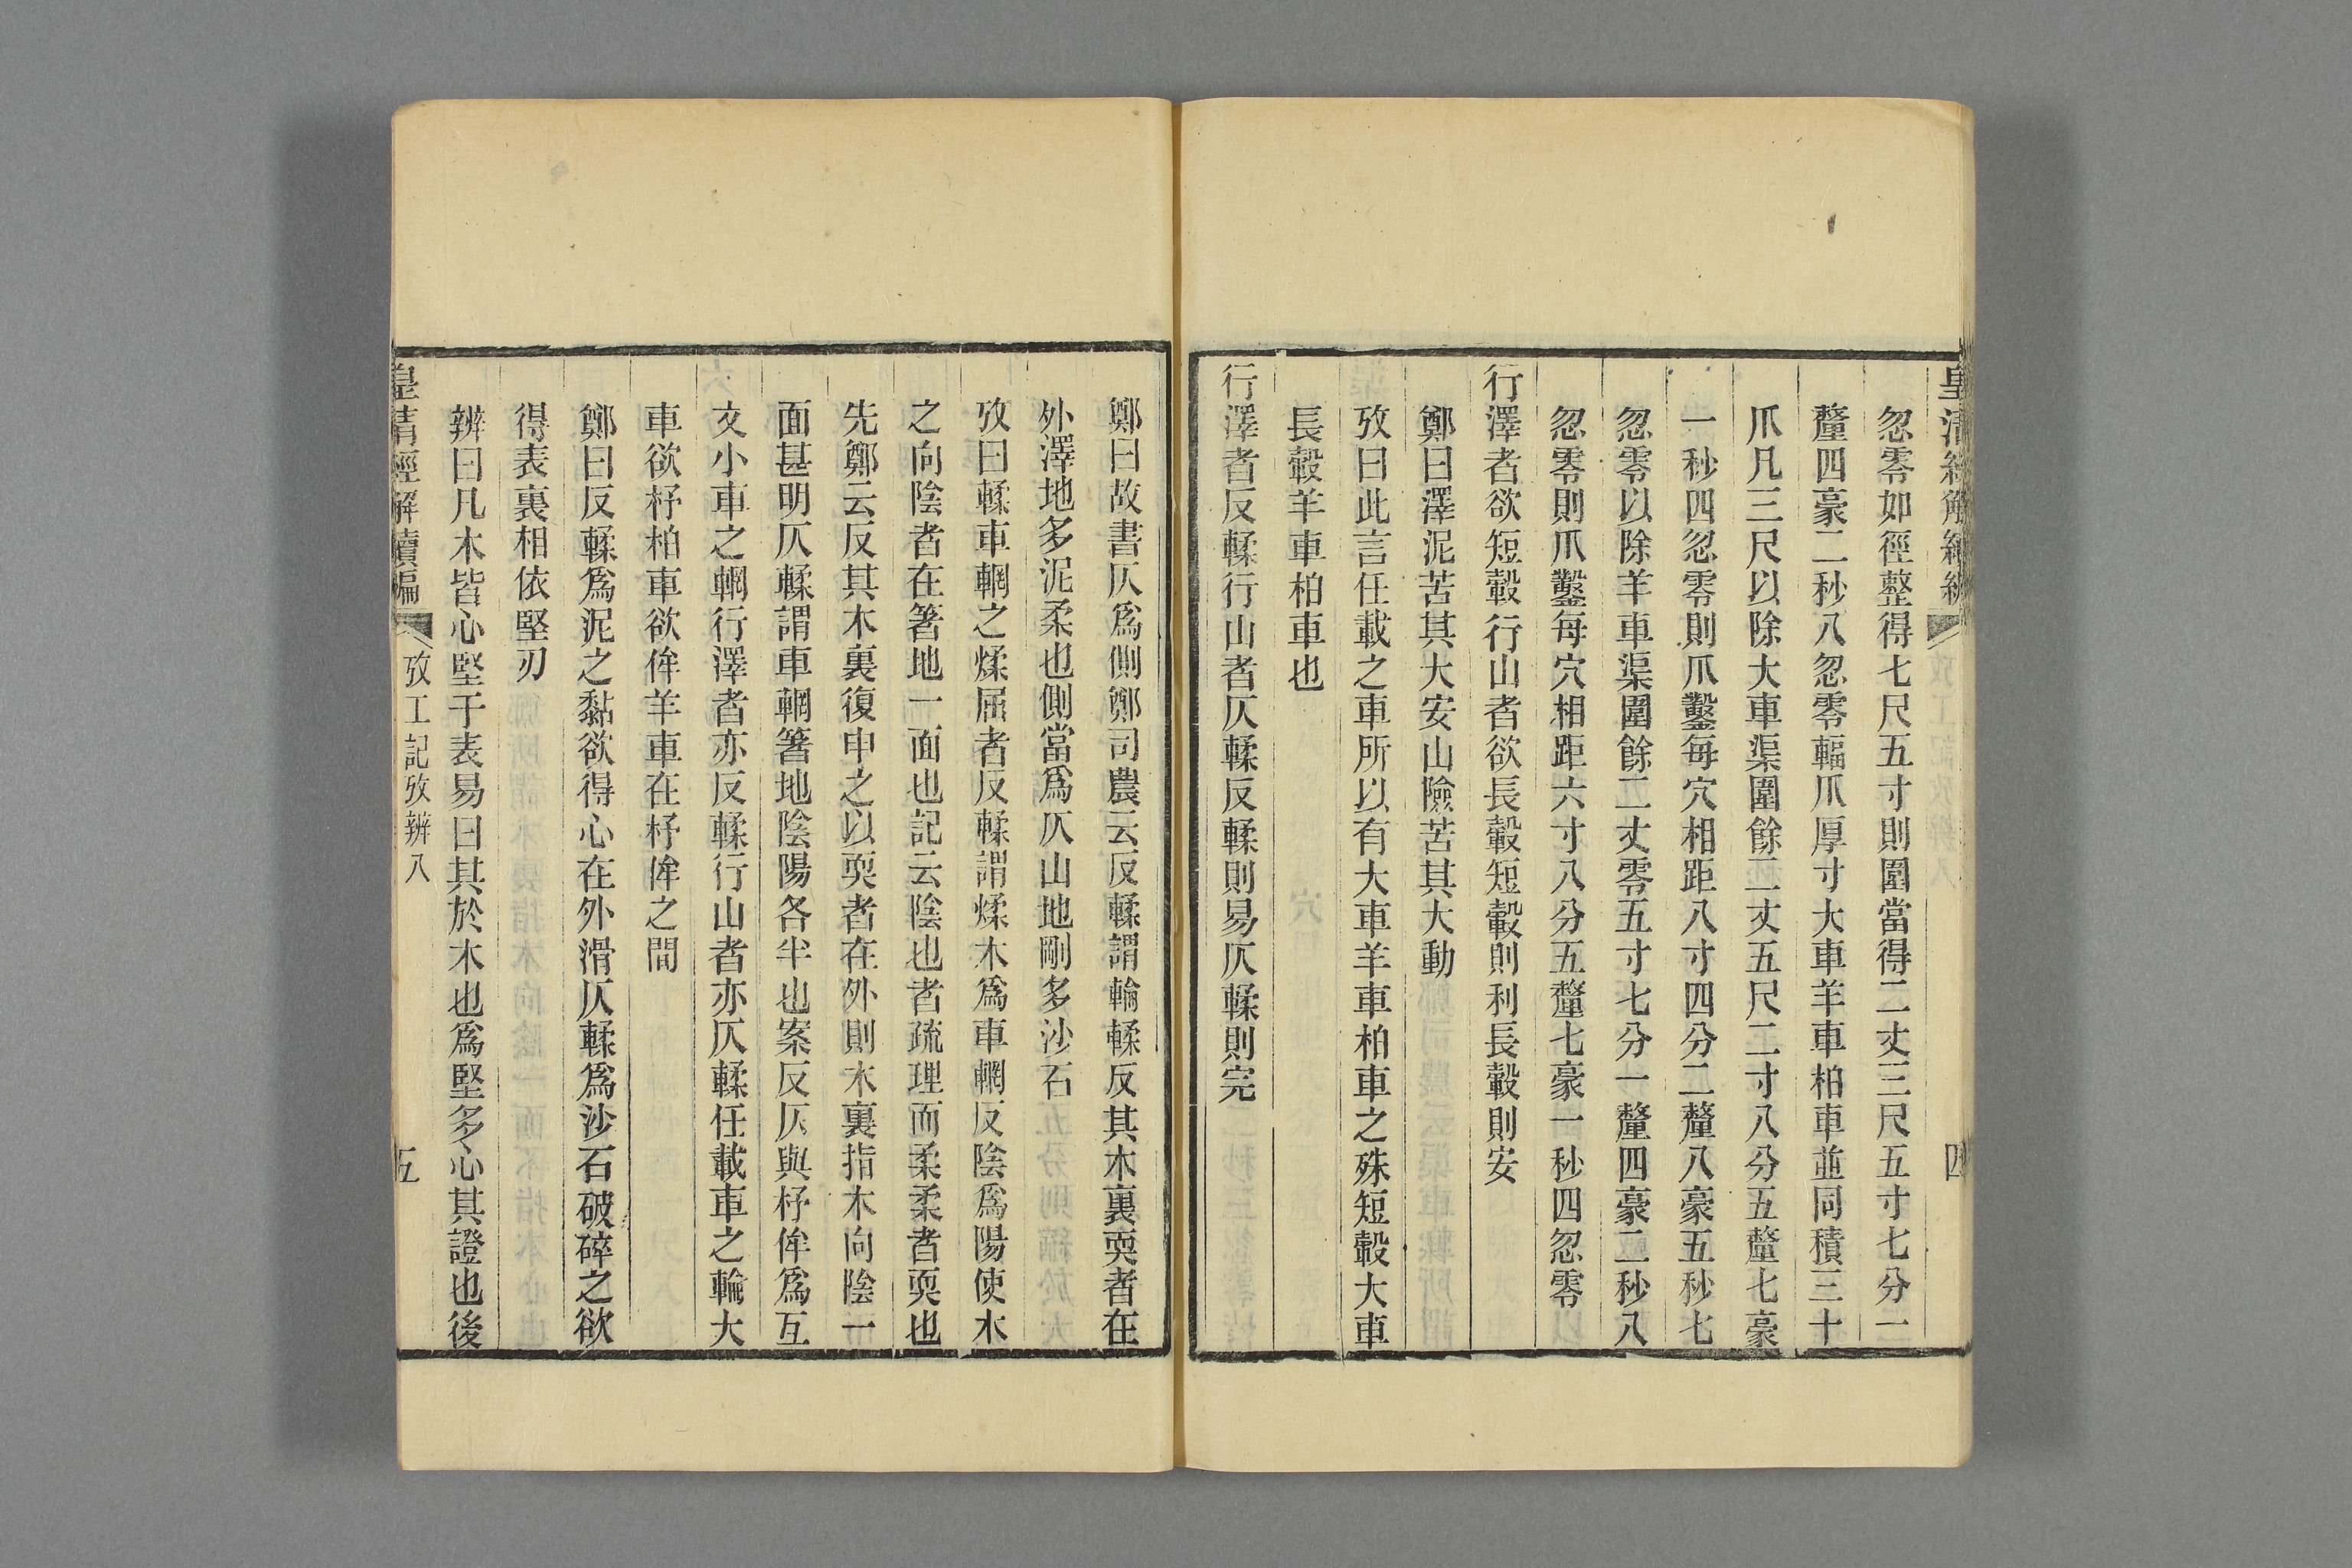 皇清經解續編
四
忽零如徑整得七尺五寸則圍當得二丈三尺五寸七分一
釐四豪二秒八忽零輻爪厚寸大車羊車柏車並同積三十
爪凡三尺以除大車渠圍餘二丈五尺二寸八分五釐七豪
一秒四忽零則爪鑿每穴相距八寸四分二釐八豪五秒七
忽零以除羊車渠圍餘二丈零五寸七分一釐四豪二秒八
忽零則爪鑿每穴相距六寸八分五釐七豪一秒四忽零
行澤者欲短轂行山者欲長轂短轂則利長轂則安
鄭曰澤泥苦其大安山險苦其大動
攷曰此言任載之車所以有大車羊車柏車之殊短轂大車
長轂羊車柏車也
行澤者反輮行山者仄輮反輮則易仄輮則完
鄭曰故書仄爲側鄭司農云反輮謂輪輮反其木裏耎者在
外澤地多泥柔也側當爲仄山地剛多沙石
攷曰輮車輞之煣屈者反輮謂煣木爲車輞反陰爲陽使木
之向陰者在箸地一面也記云陰也者疏理而柔柔者耎也
先鄭云反其木裏復申之以耎者在外則木裏指木向陰一
面甚明仄輮謂車輞箸地陰陽各半也案反仄與杼侔爲互
文小車之輞行澤者亦反輮行山者亦仄輮任載車之輪大
車欲杼柏車欲侔羊車在杼侔之間
鄭曰反輮爲泥之黏欲得心在外滑仄輮爲沙石破碎之欲
得表裏相依堅刃
辨曰凡木皆心堅于表易曰其於木也爲堅多心其證也後
皇清經解續編
攷工記攷辨八
五